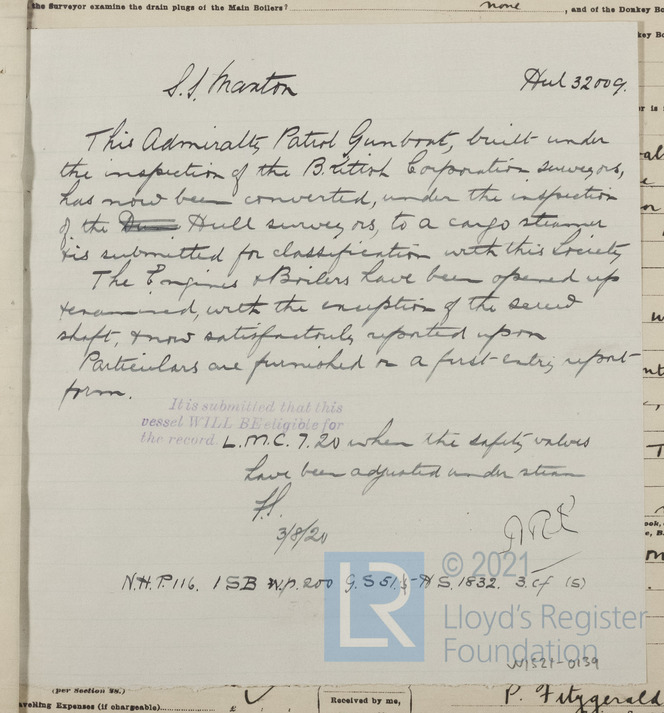 the Surveyor examine the drain plugs of the Main Boilers? none , and of the Donkey Bo
S.S. Maxton Hul 32009.
This Admiralty Patrol Gunboat, built under
the inspection of the British Corporation surveyors,
has now been converted, under the inspection
of the Hull surveyors, to a cargo steamer
& is submitted for classification with this Society
The Engines & Boilers have been opened up
& examined, with the exception of the screw
shaft, & now satisfactorily reported upon
Particulars are furnished on a first entry report
form.
It is submitted that this
vessel WILL BE eligible for
the record L.M.C. 7.20 when the safety valves
have been adjusted under steam
3/8/20
N.H.P. 116. 1 SB W.p. 200 G.S 51.5 H S. 1832. 3. cf (S)
LR
© 2021
Lloyd's Register
Foundation
W1521-0139
(per Section 28.)
avelling Expenses (if chargeable) £
Received by me,
P. Fitzgerald